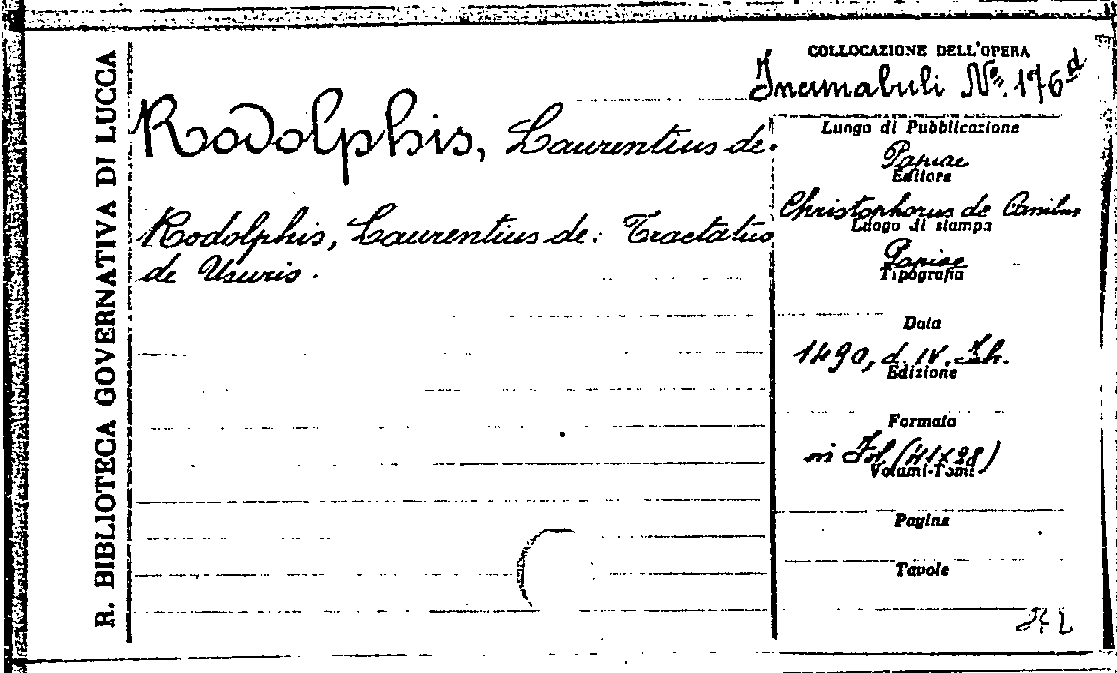 R. BIBLIOTECA GOVERNATIVA DI LUCCA
COLLOCAZIONE DELL'OPERA
Incunabuli Nº. 176d
Rodolphis, Laurentius de.
Rodolphis, Laurentius de: Tractatus
de Usuris.
Luogo di Pubblicazione
Papiae
Editore
Christophorus de Canibus
Luogo di stampa
Papiae
Tipografia
Data
1490, d. IV.
Edizione
Formato
in Fol. (41x28)
Volumi-Tomi
Pagine
Tavole